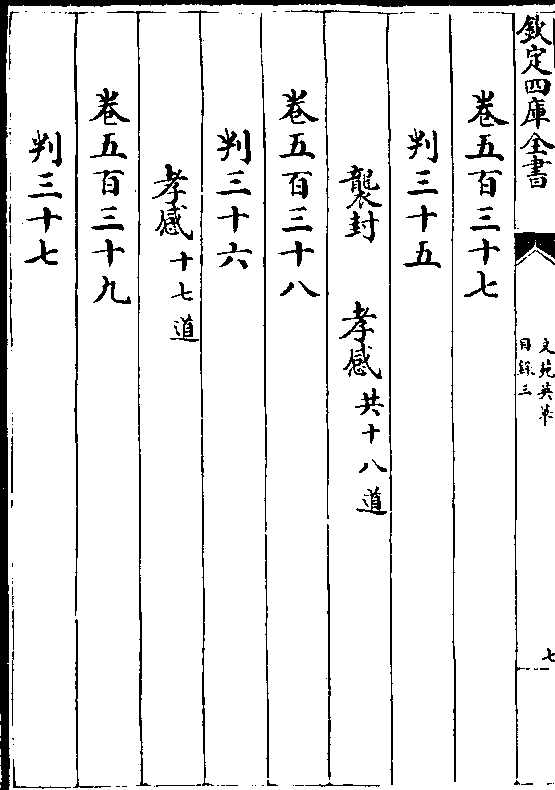 欽定四庫全書
文苑英華
目録三
七
卷五百三十七
判三十五
襲封 孝感共十八道
卷五百三十八
判三十六
孝感十七道
卷五百三十九
判三十七